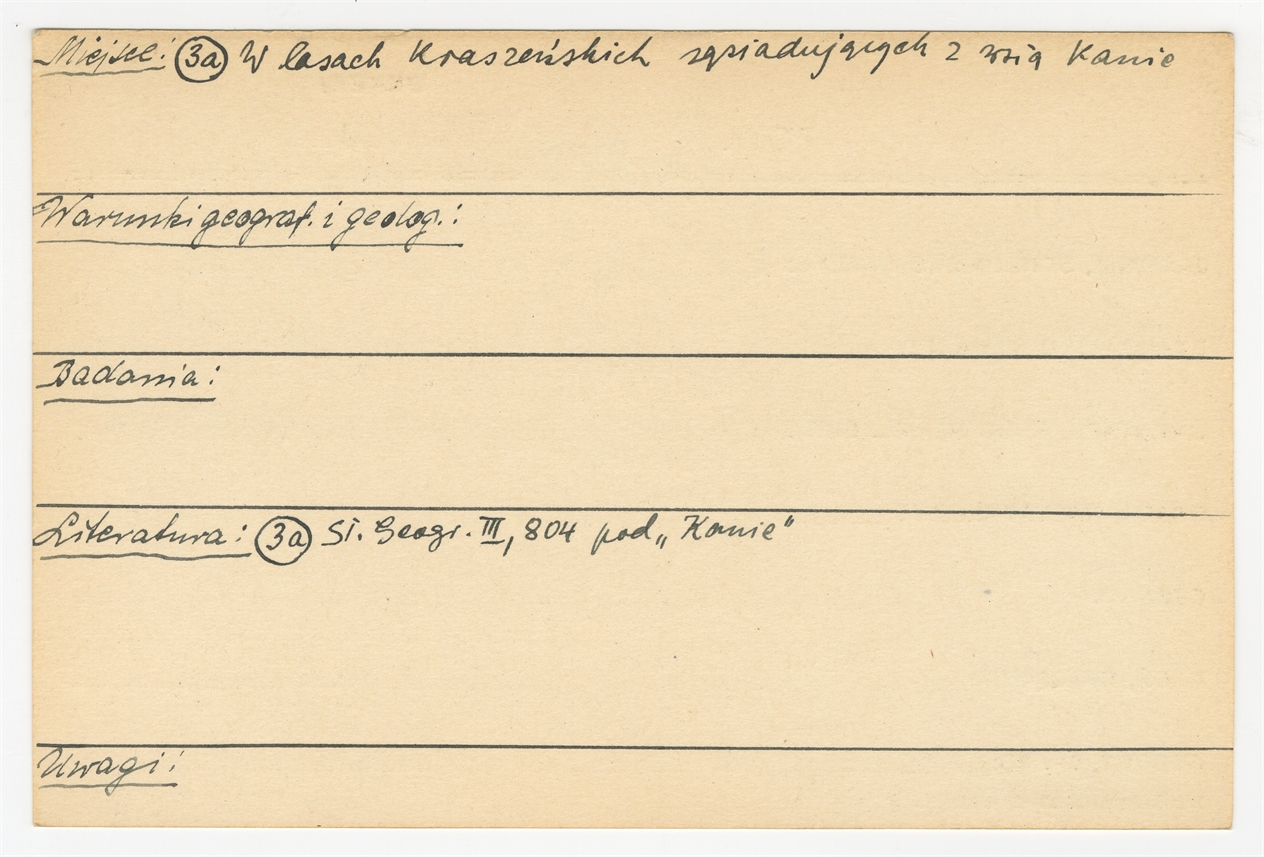 Miejsce: 3a W lasach Kraszeńskich sąsiadujących z wsią Kanie
Warunki geograf. i geolog.:
Badania:
Literatura: 3a Sł. Geogr. III, 804 pod „Kanie”
Uwagi: